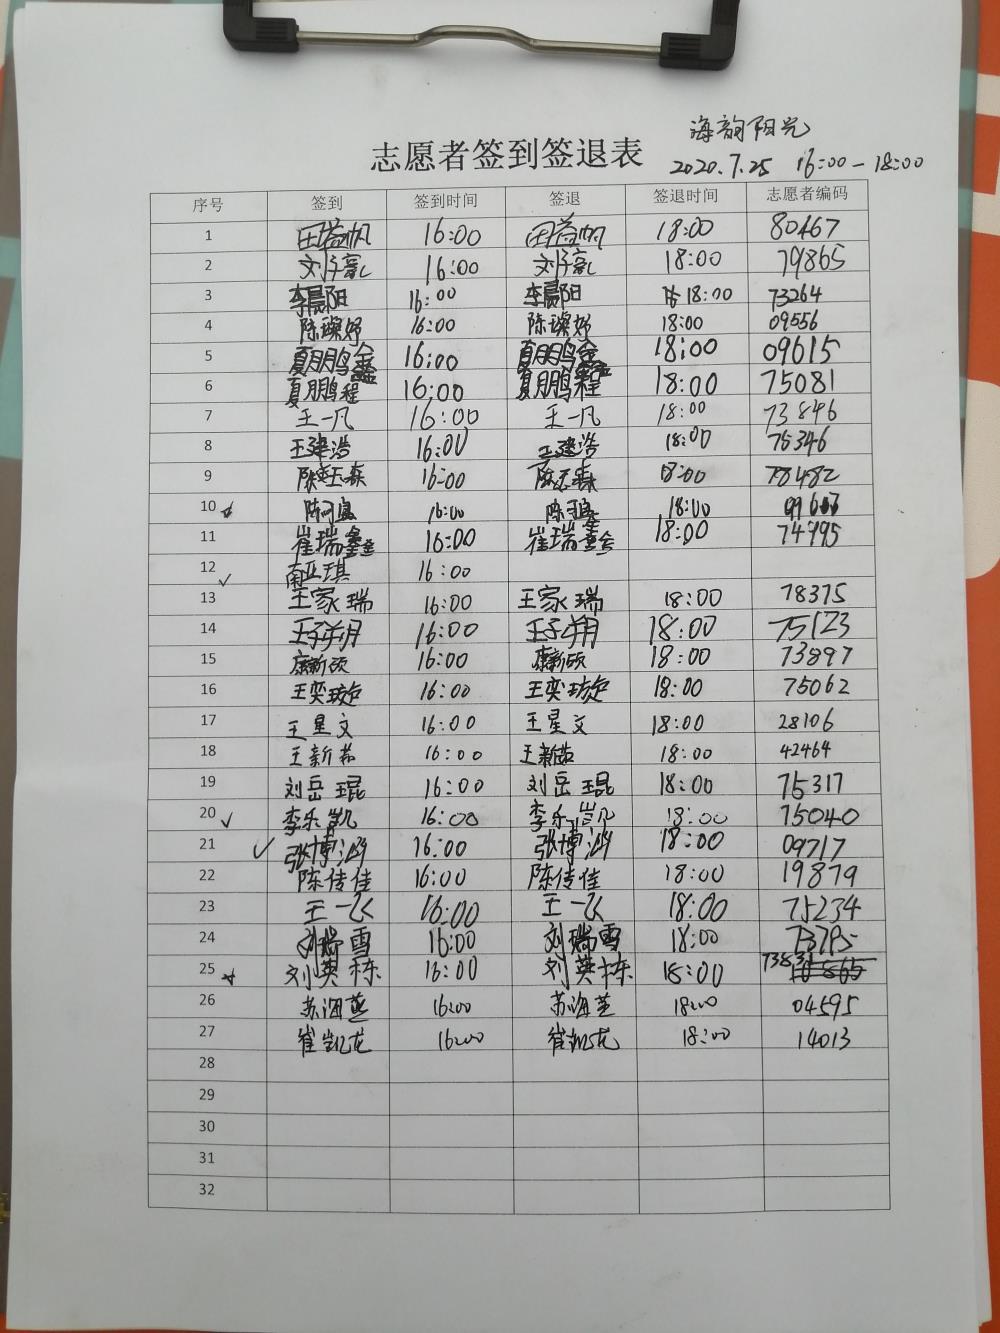 海韵阳光
志愿者签到签退表
2020.7.25 16:00-18:00
序号 签到 签到时间 签退 签退时间 志愿者编码
1 田益帆 16:00 田益帆 18:00 80467
2 刘子毅 16:00 刘子毅 18:00 79865
3 李晨阳 16:00 李晨阳 18:00 73264
4 陈璨妤 16:00 陈璨妤 18:00 09556
5 夏鹏鑫 16:00 夏鹏鑫 18:00 09615
6 夏鹏程 16:00 夏鹏程 18:00 75081
7 王一凡 16:00 王一凡 18:00 73846
8 王建浩 16:00 王建浩 18:00 75346
9 16:00 18:00 78482
10 16:00 18:00
11 崔瑞鑫 16:00 崔瑞鑫 18:00 74995
12 南亚琪 16:00
13 王家瑞 16:00 王家瑞 18:00 78375
14 王子翔 16:00 王子翔 18:00 75123
15 康新硕 16:00 康新硕 18:00 73897
16 王奕璇 16:00 王奕璇 18:00 75062
17 王星文 16:00 王星文 18:00 28106
18 王新茹 16:00 王新茹 18:00 42464
19 刘岳琨 16:00 刘岳琨 18:00 75317
20 李乐凯 16:00 李乐凯 18:00 75040
21 张博涵 16:00 张博涵 18:00 09717
22 陈传佳 16:00 陈传佳 18:00 19879
23 王一飞 16:00 王一飞 18:00 75234
24 刘瑞雪 16:00 刘瑞雪 18:00 73795
25 刘英栋 16:00 刘英栋 18:00
26 苏海燕 16:00 苏海燕 18:00 04595
27 崔凯龙 16:00 崔凯龙 18:00 14013
28
29
30
31
32